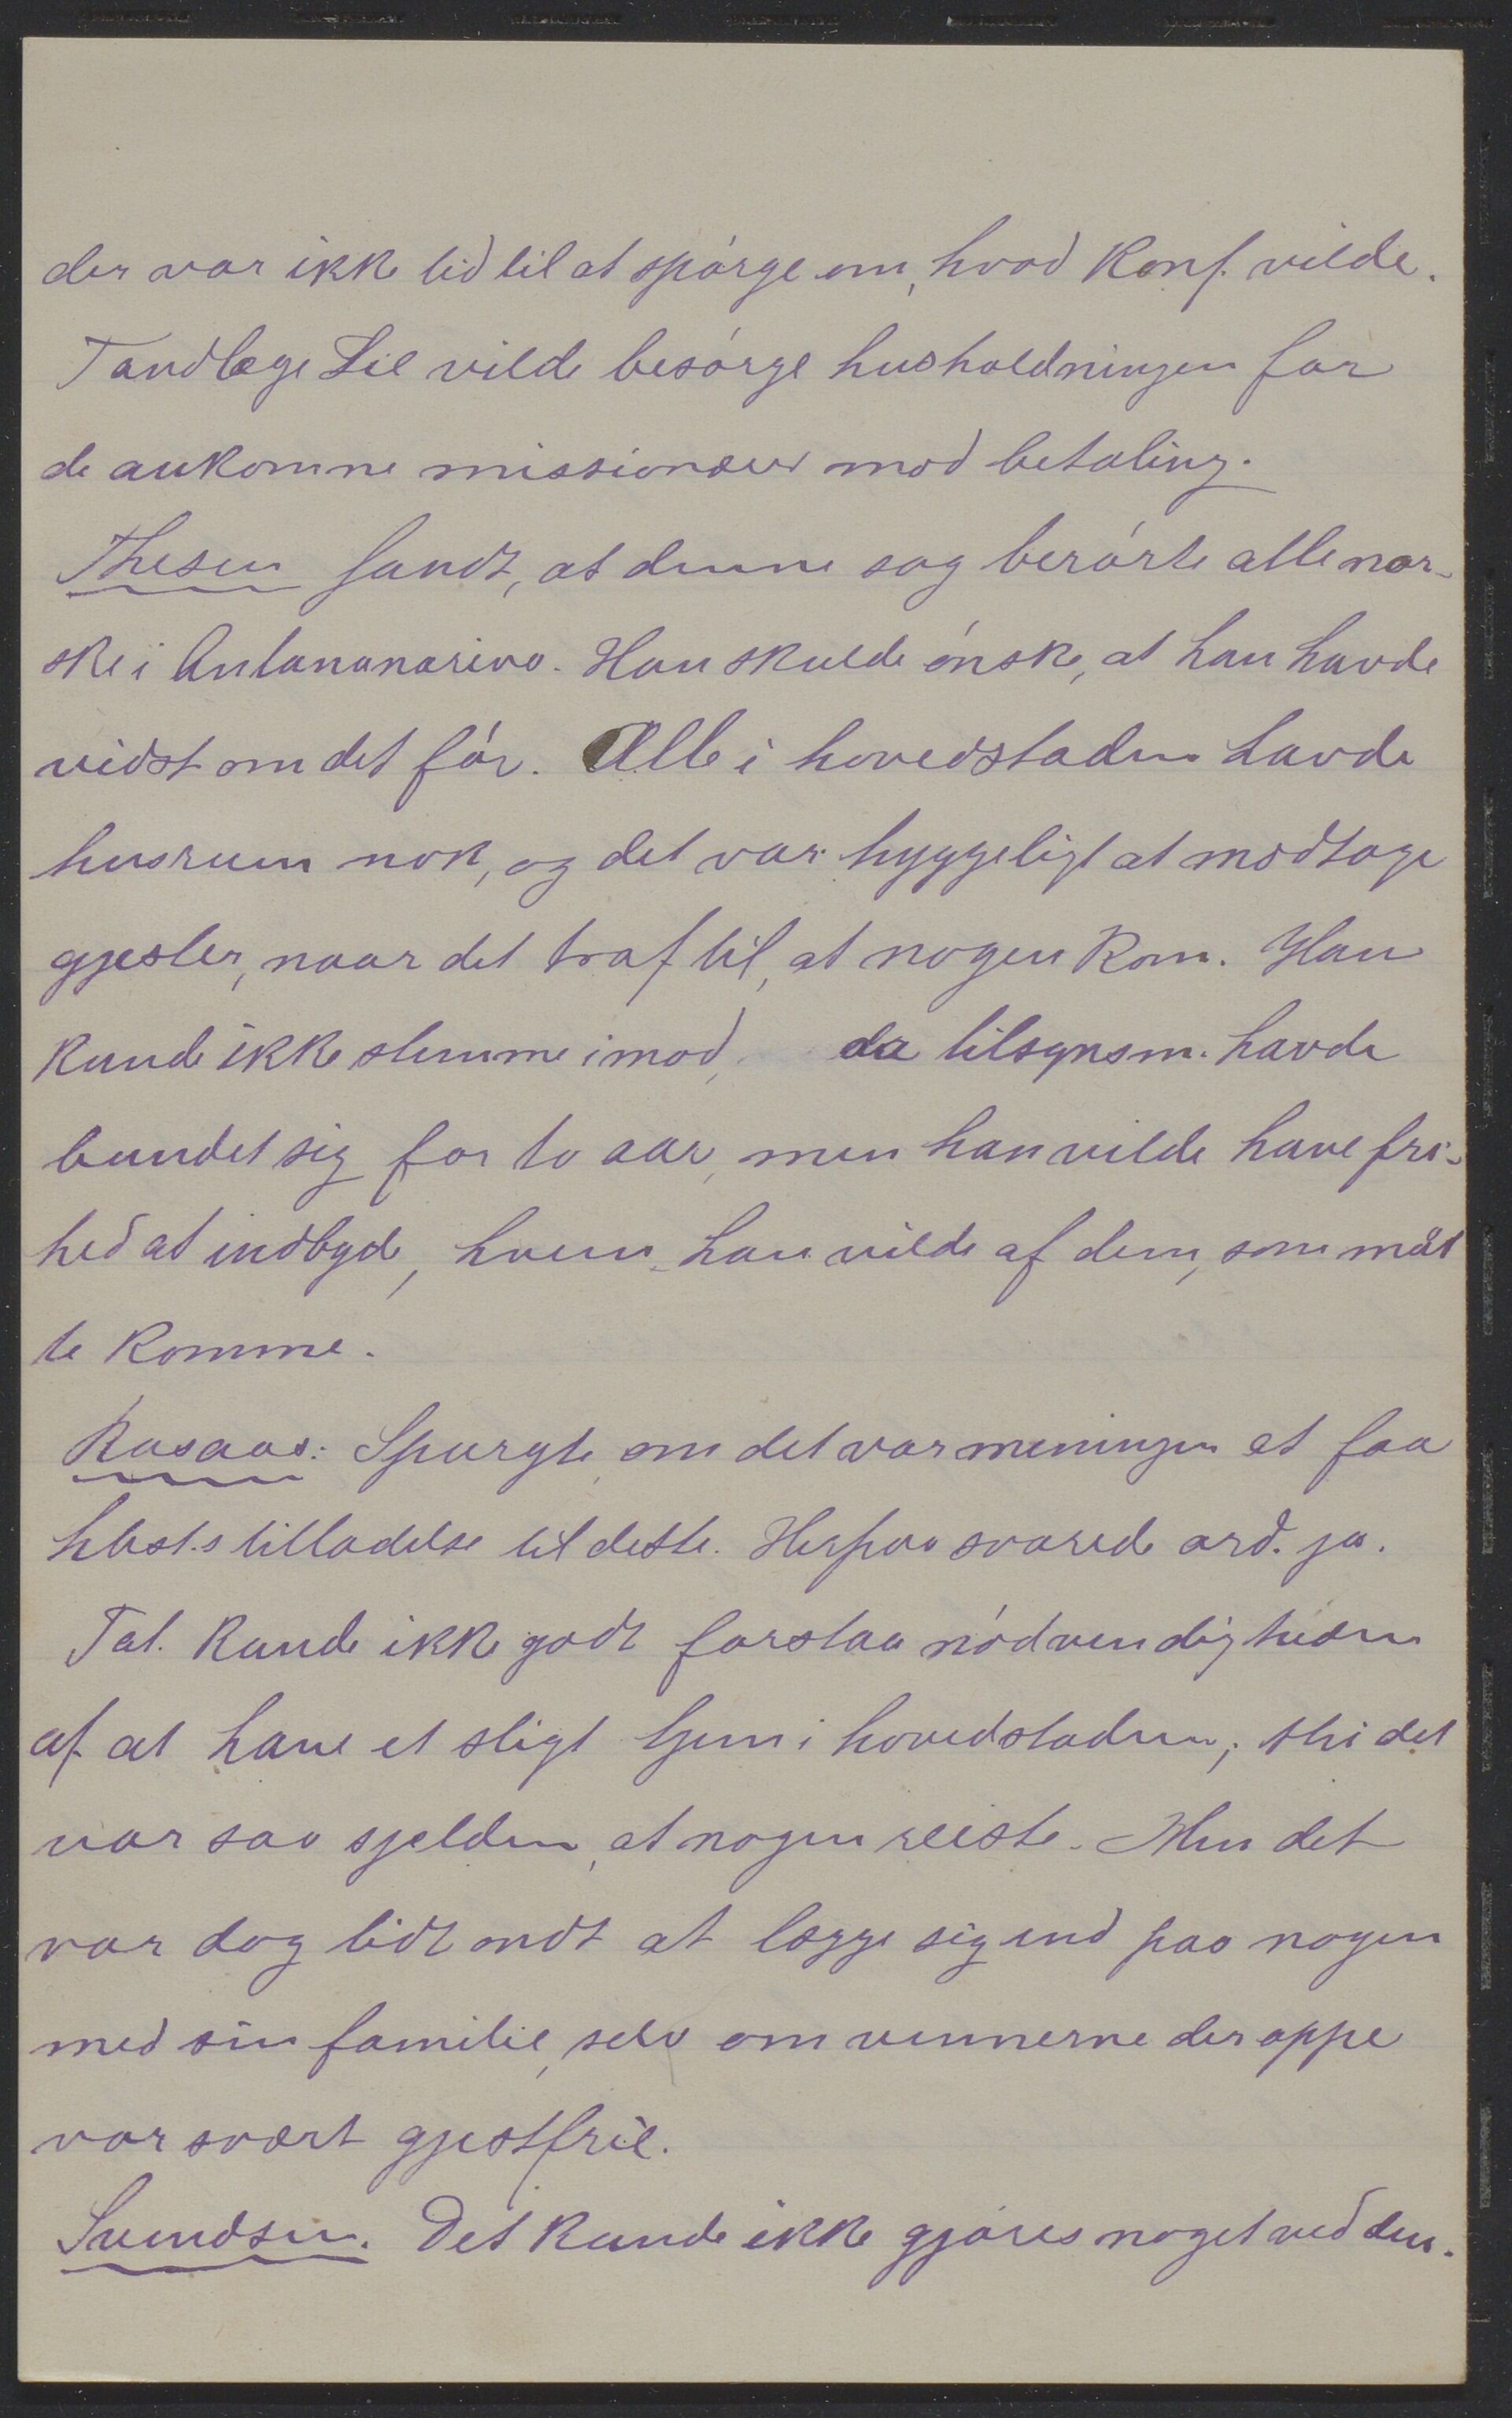 der var ikke tid til at spórge om, hvad Konf. vilde.
Tandlæge Lie vilde besórge husholdningen for
de ankomne missionærer mod betaling.
Thesen fandt, at denne sag berórte alle nor-
ske i Antananarivo. Han skulde ónske, at han havde
vidst om det fór. Alle i hovedstaden havde
husrum nok, og det var hyggeligt at modtage
gjester, naar det traf til, at nogen kom. Han
kunde ikke stemme imod, da tilsynsm. havde
bundet sig for to aar, men han vilde have fri-
hed at indbyde, hvem han vilde af dem, som måt
te komme.
Rosaas: Spurgte, om det var meningen at faa
hbst.s tilladelse til dette. Herpaa svarede ord. ja.
Tal. kunde ikke godt forstaa nódvendigheden
af at have et sligt hjem i hovedstaden; thi det
var saa sjelden, at nogen reiste. Men det
var dog lidt ondt at lægge sig ind paa nogen
med sin familie, selv om vennerne der oppe
var svært gjestfrie.
Svendsen. Det kunde ikke gjóres noget ved den.